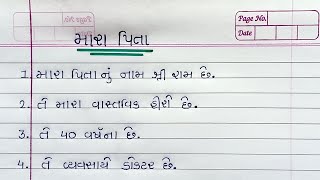 Page No.
Date
મારા પિતા
1. મારા પિતાનું નામ શ્રી રામ છે.
2. તે મારા વાસ્તવિક હીરો છે.
3. તે 40 વર્ષના છે.
4. તે વ્યવસાયે ડોક્ટર છે.